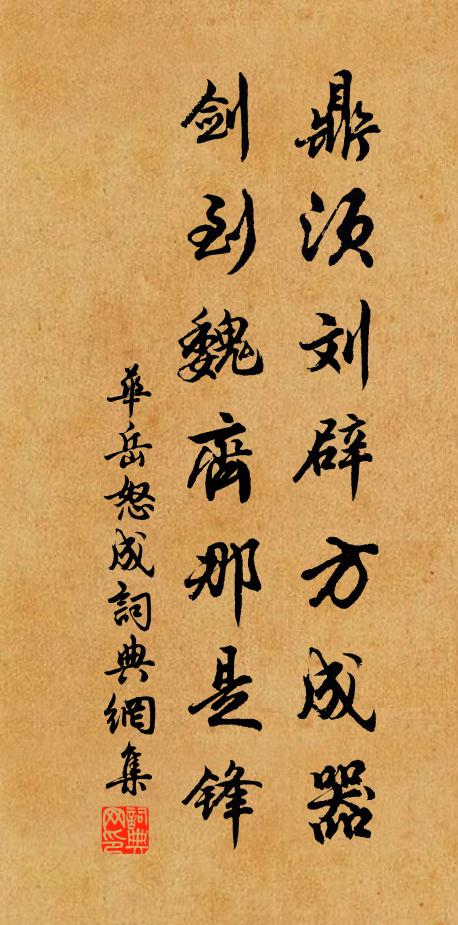 鼎须刘辟方成器
剑到魏齊那是锋
華岳怒成詞典網集
詞典网印